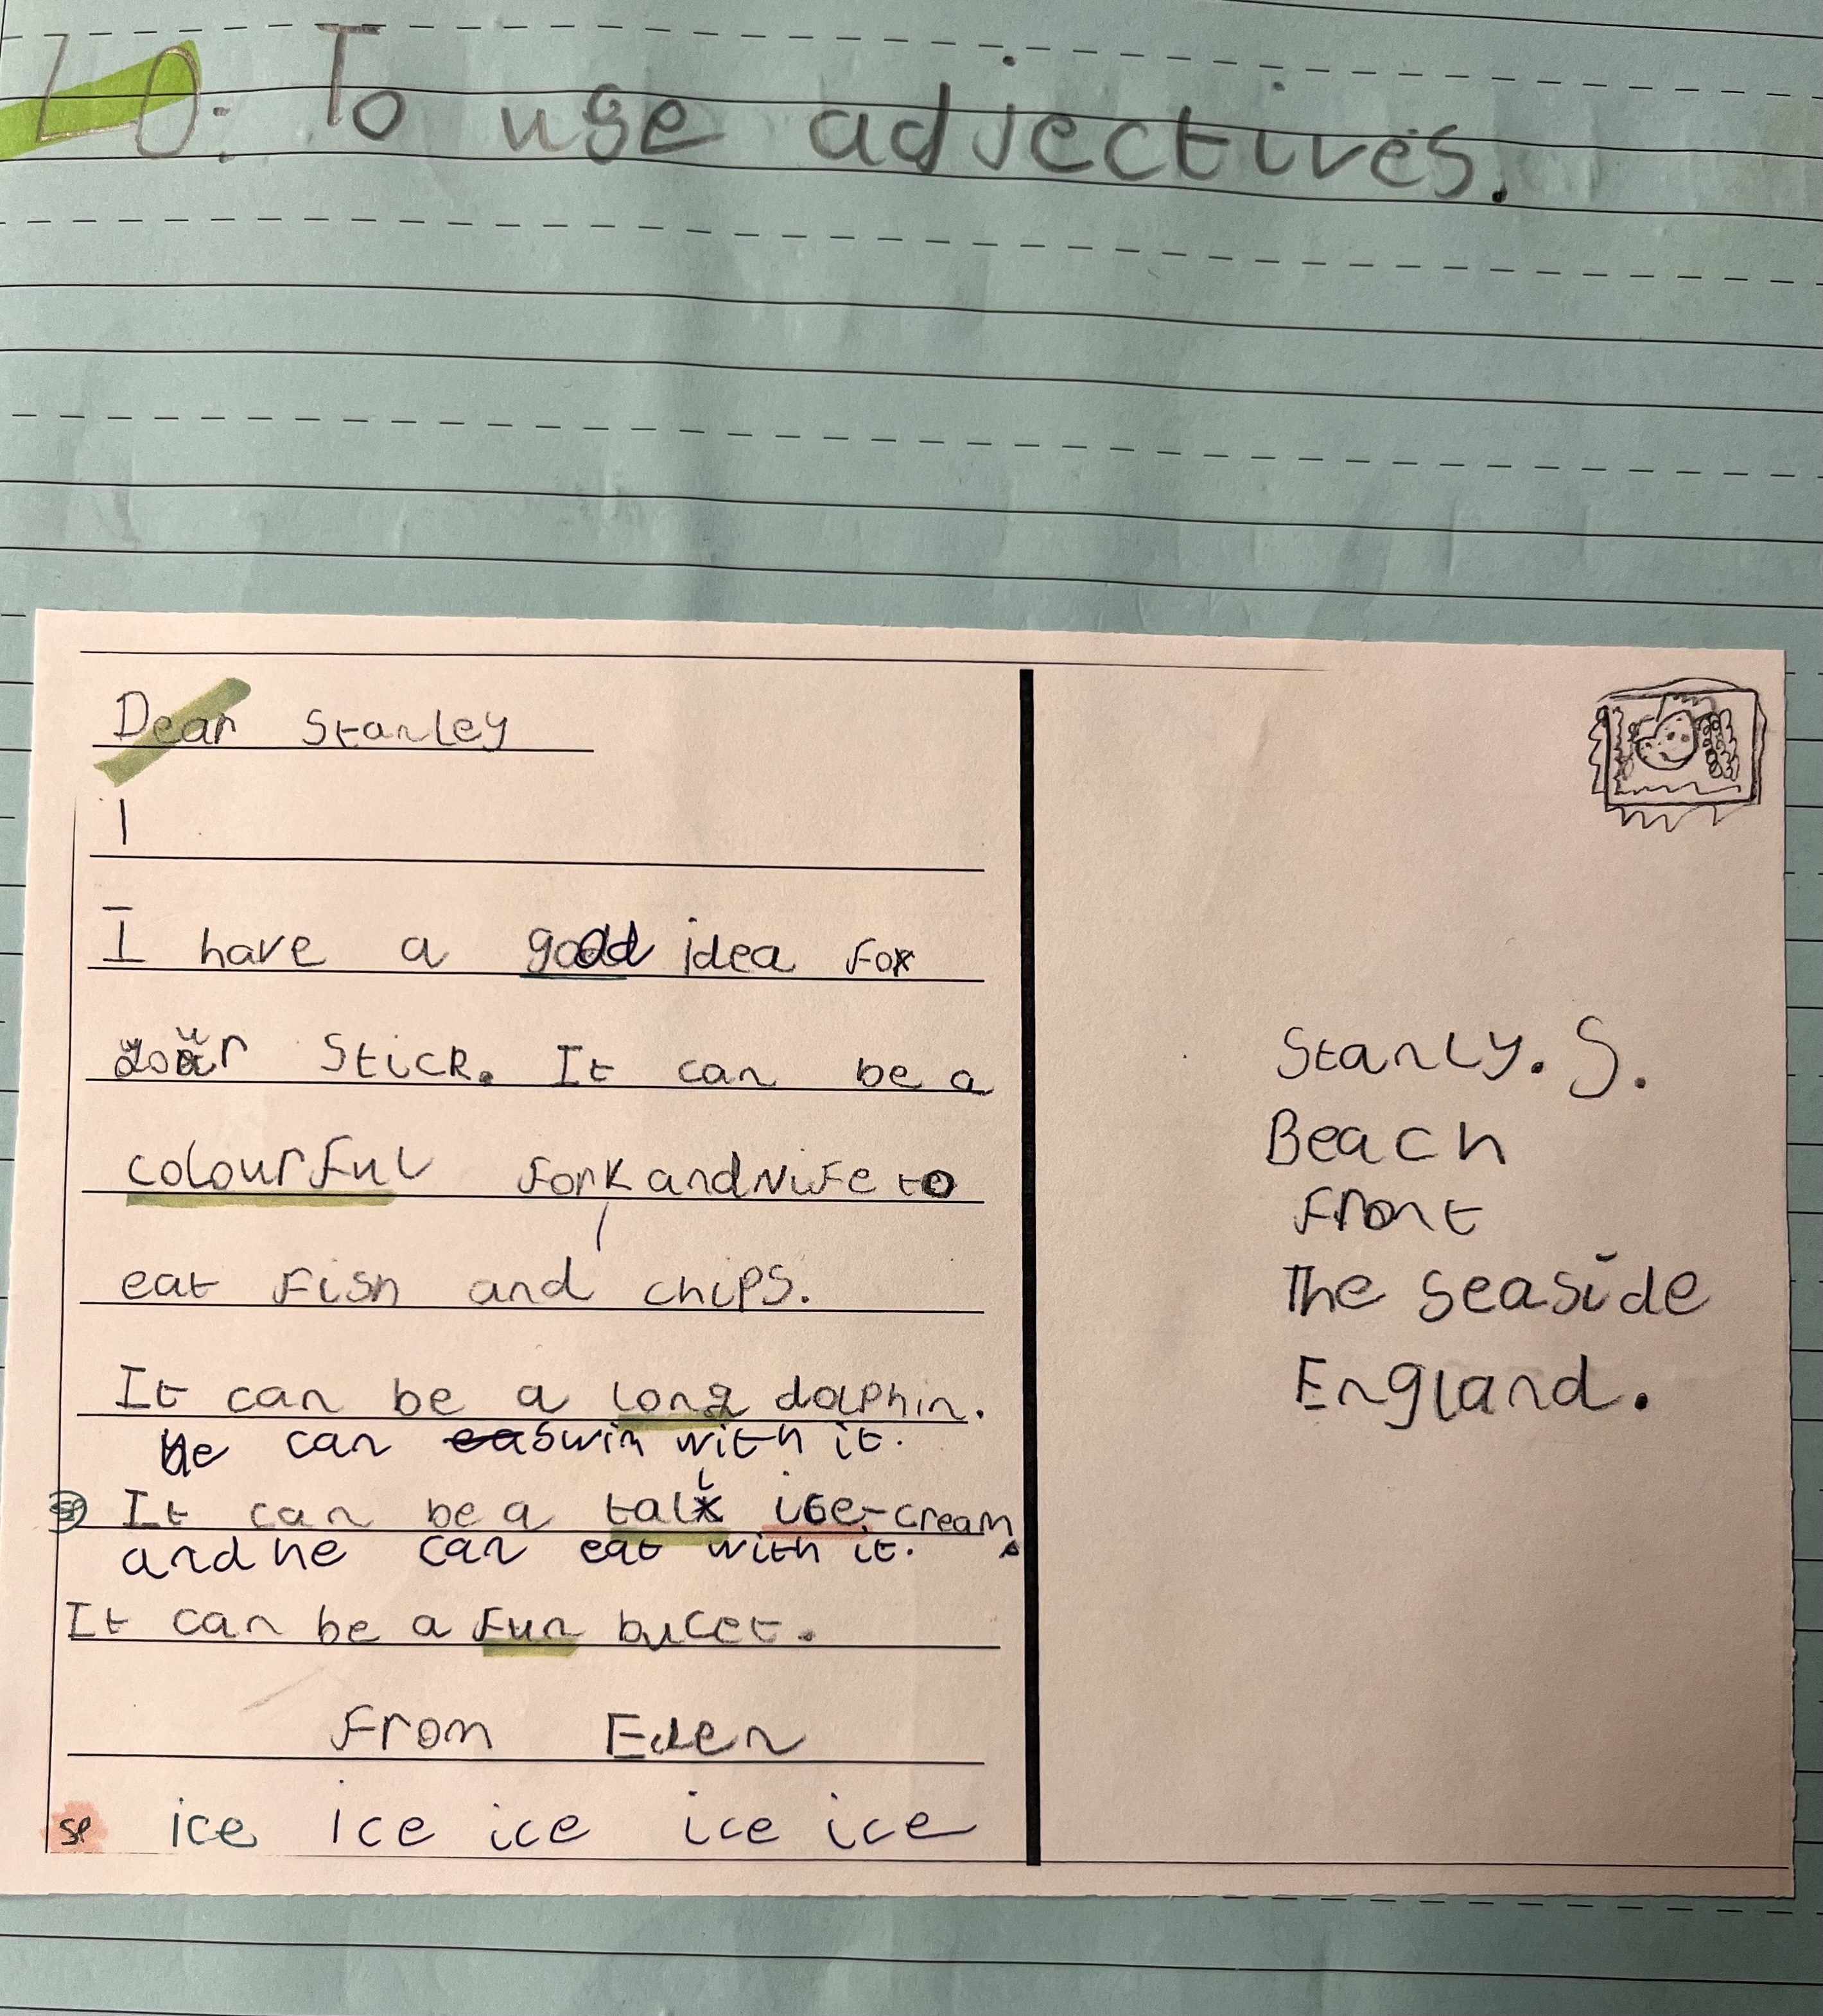 LO: To use adjectives.
Dear Stanley
I
I have a good idea for
your stick. It can be a
colourful fork and nife to
eat fish and chips.
It can be a long dolphin.
He can swim with it.
sp It can be a tall ice-cream.
and he can eat with it.
It can be a fun bucet.
From Eden
sp ice ice ice ice ice
Stanly. S.
Beach
Front
The seaside
England.